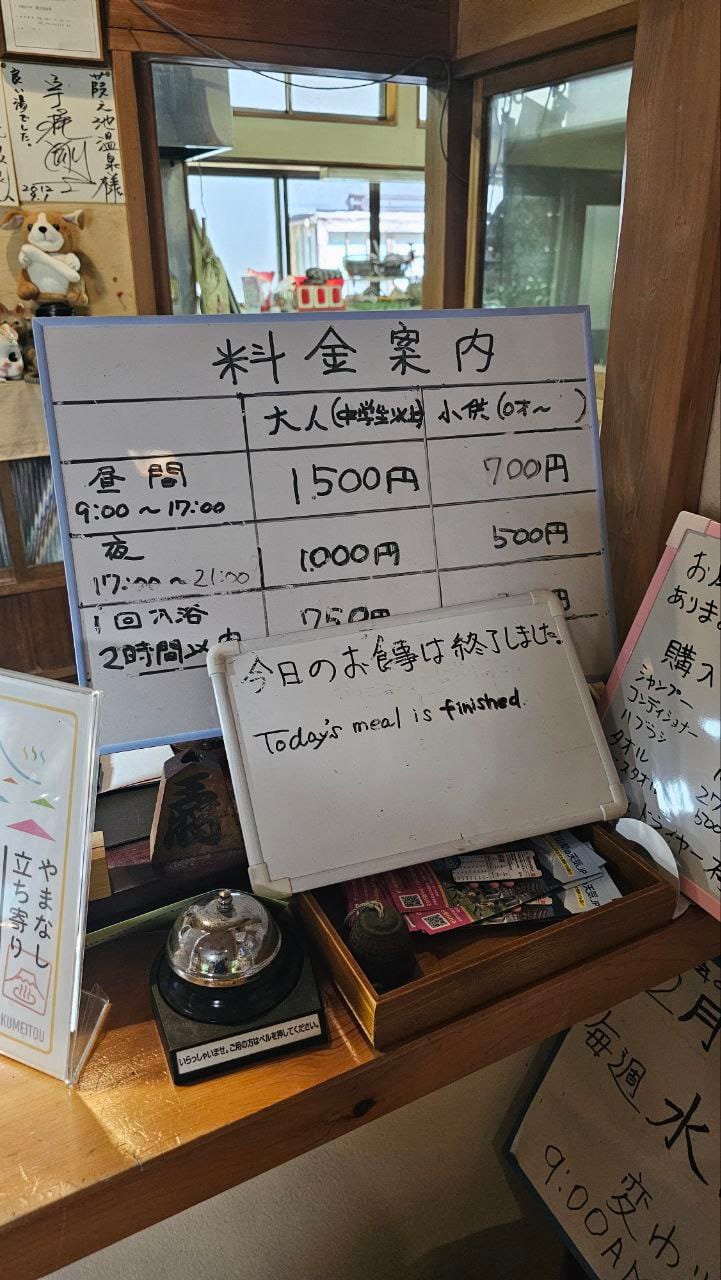 葭之池温泉様
良い湯でした。
2012
料金案内
大人(中学生以上) 小供(0才〜 )
昼間 1,500円 700円
9:00〜17:00
夜 1,000円 500円
17:00〜21:00
1回入浴 750円
2時間以内
今日のお食事は終了しました。
Today's meal is finished.
いらっしゃいませ。ご用の方はベルを押してください。
やまなし
立ち寄り
KUMEITOU
購入
シャンプー
コンディショナー
ハブラシ
タオル
月
毎週
水
変わ
9:00A